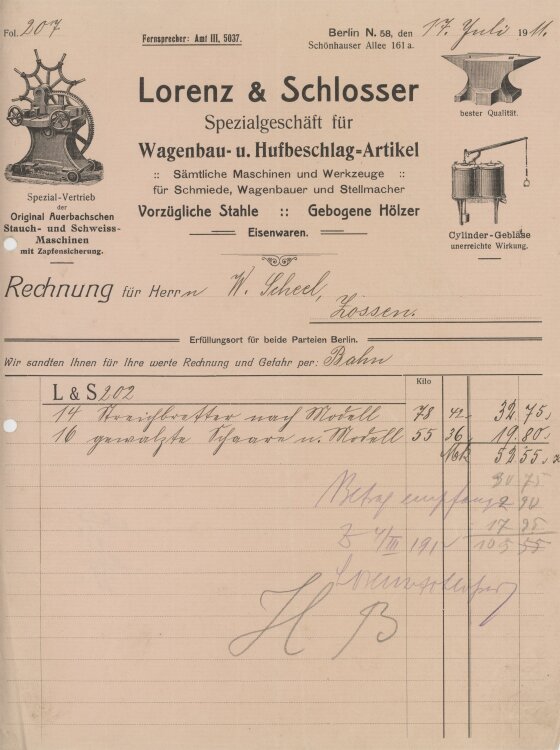 Fol. 207
Fernsprecher: Amt III, 5037.
Berlin N. 58, den 17. Juli 1911.
Schönhauser Allee 161a.
Lorenz & Schlosser
Spezialgeschäft für
Wagenbau- u. Hufbeschlag-Artikel
:: Sämtliche Maschinen und Werkzeuge ::
für Schmiede, Wagenbauer und Stellmacher
Vorzügliche Stahle :: Gebogene Hölzer
Eisenwaren.
Spezial-Vertrieb
der
Original Auerbachschen
Stauch- und Schweiss-
Maschinen
mit Zapfensicherung.
bester Qualität.
Cylinder-Gebläse
unerreichte Wirkung.
Rechnung für Herrn W. Scheel,
Zossen.
Erfüllungsort für beide Parteien Berlin.
Wir sandten Ihnen für Ihre werte Rechnung und Gefahr per: Bahn
Kilo
L & S 202
14 Streichbretter nach Modell 78 42 32.75.
16 gewalzte Schaare n. Modell 55 36 19.80.
Mk 52 55
20 75
Betrag empfang 2 90
17 95
4/III 191
H B